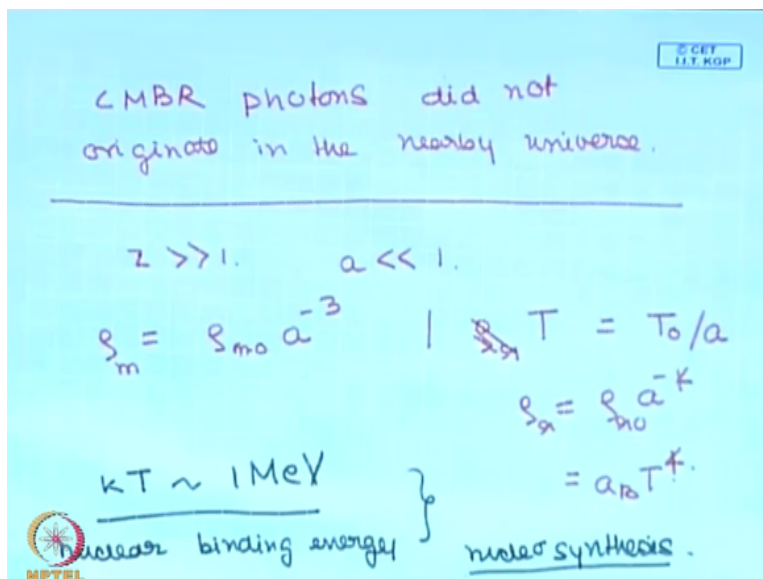 © CET
I.I.T. KGP
CMBR photons did not
originate in the nearby universe.
z >> 1. a << 1.
ρm = ρmo a^-3 | T = To/a
ρr = ρro a^-4
kT ~ 1 MeV } = aB T^4.
nuclear binding energy nucleosynthesis.
NPTEL